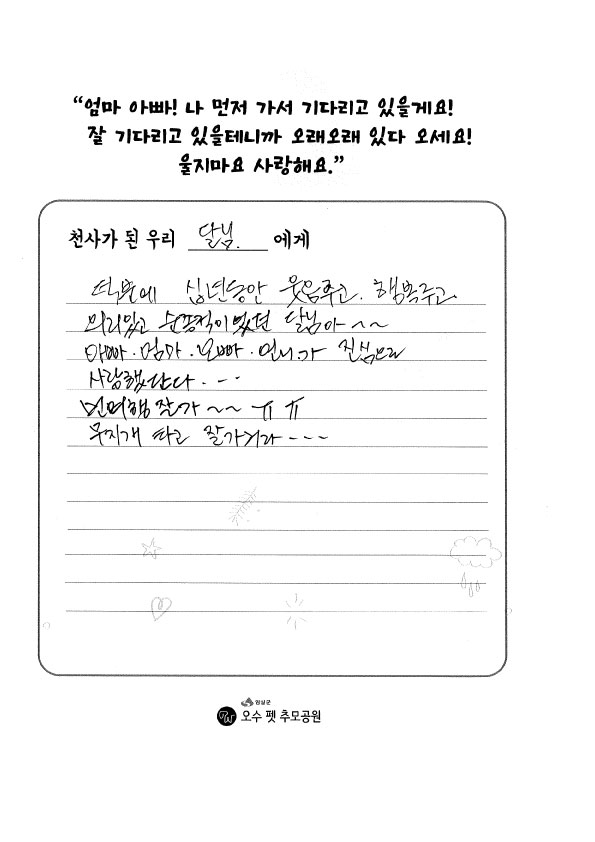 “엄마 아빠! 나 먼저 가서 기다리고 있을게요!
잘 기다리고 있을테니까 오래오래 있다 오세요!
울지마요 사랑해요.”
천사가 된 우리 달님. 에게
덕분에 십년동안 웃음주고. 행복주고
의리있고 순종적이었던 달님아~~
아빠. 엄마. 오빠. 언니가 진심으로
사랑했단다. - -
잘가~~ ㅠㅠ
무지개 타고 잘가거라---
임실군
오수 펫 추모공원